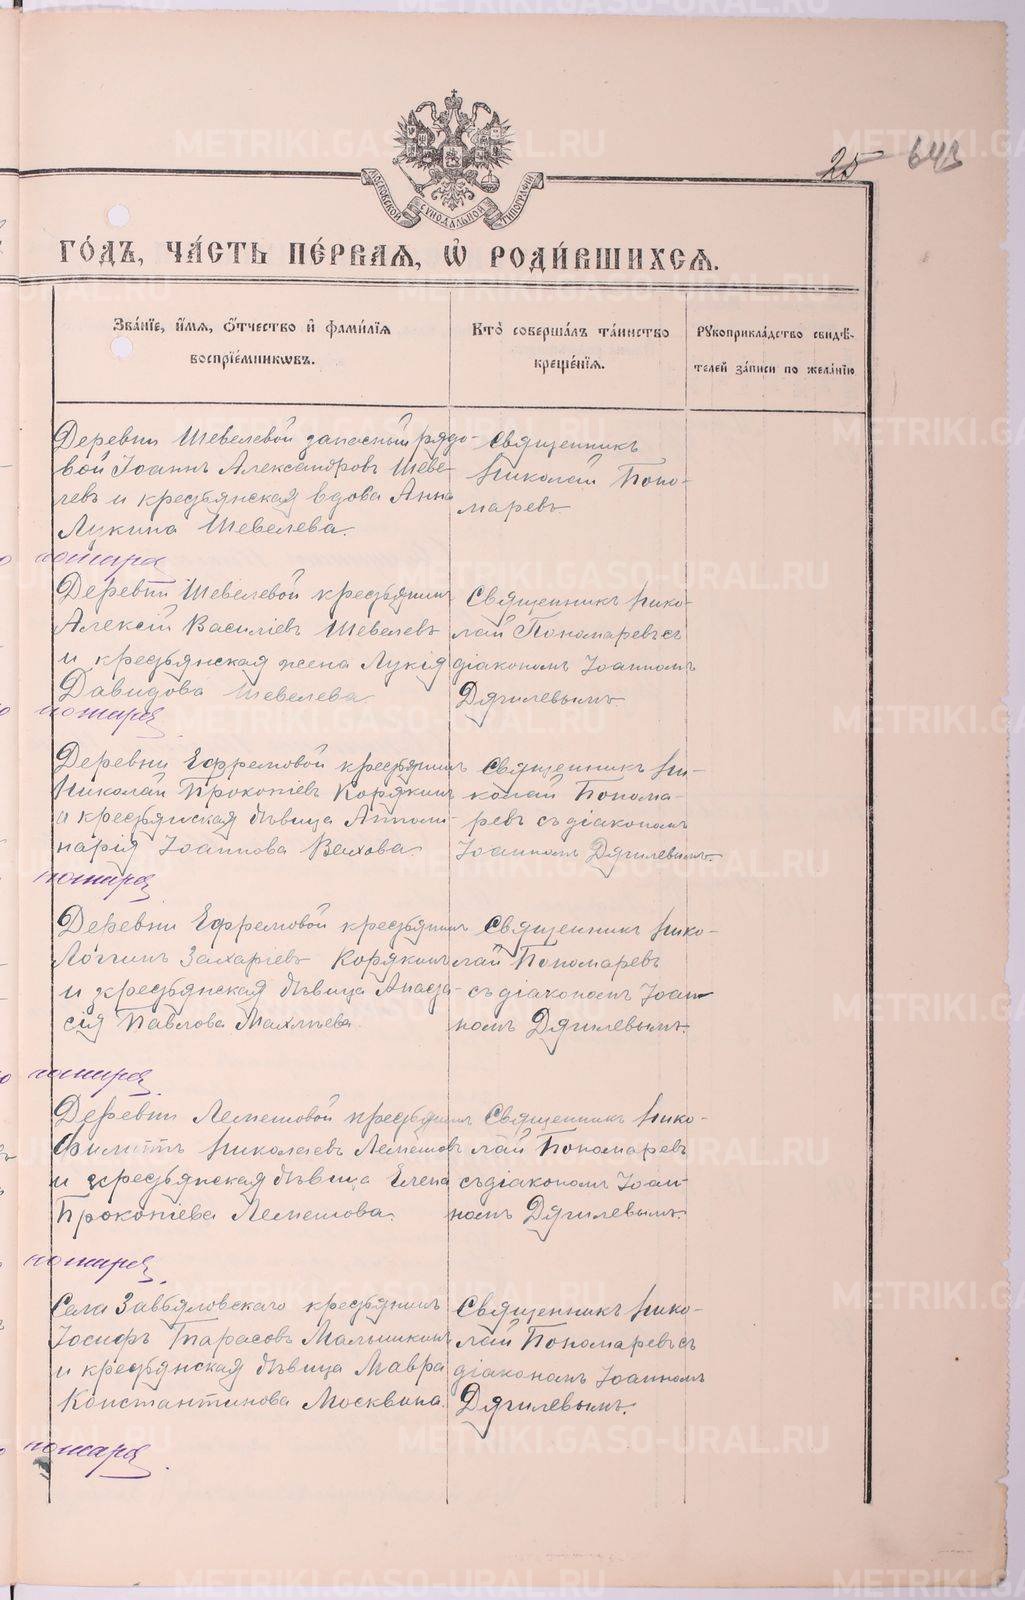 25 643
МОСКОВСКОЙ СУНОДАЛЬНОЙ ТИПОГРАФІИ
ГО́ДЪ, ЧА́СТЬ ПЕ́РВАѦ, Ѽ РОДИ́ВШИХСѦ.
Зва́нїе, и҆́мѧ, ѻ҆́тчество и҆ фами́лїѧ
воспрїе́мникѡвъ.
Кто̀ соверша́лъ та́инство
креще́нїѧ.
Рꙋкоприкла́дство свидѣ́-
телей за́писи по жела́нїю
Деревни Шевелевой запасный рядо-
вой Іоаннъ Александровъ Шеве-
левъ и крестьянская вдова Анна
Лукина Шевелева.
Священникъ
Николай Поно-
маревъ.
пожара
Деревни Шевелевой крестьянинъ
Алексій Василіевъ Шевелевъ
и крестьянская жена Лукія
Давидова Шевелева.
Священникъ Нико-
лай Пономаревъ съ
діакономъ Іоанномъ
Дягилевымъ.
пожара
Деревни Ефремовой крестьянинъ
Николай Прокопіевъ Корякинъ
и крестьянская дѣвица Аполи-
нарія Іоаннова Вехова.
Священникъ Ни-
колай Понома-
ревъ съ діакономъ
Іоанномъ Дягилевымъ.
пожара
Деревни Ефремовой крестьянинъ
Логгинъ Захаріевъ Корякинъ
и крестьянская дѣвица Анаста-
сія Павлова Махнева.
Священникъ Нико-
лай Пономаревъ
съ діакономъ Іоан-
номъ Дягилевымъ.
пожара
Деревни Лемешовой крестьянинъ
Филиппъ Николаевъ Лемешовъ
и крестьянская дѣвица Елена
Прокопіева Лемешова.
Священникъ Нико-
лай Пономаревъ
съ діакономъ Іоан-
номъ Дягилевымъ.
пожара
Села Завьяловскаго крестьянинъ
Іосифъ Тарасовъ Малышкинъ
и крестьянская дѣвица Мавра
Константинова Москвина.
Священникъ Нико-
лай Пономаревъ съ
діакономъ Іоанномъ
Дягилевымъ.
пожара
METRIKI.GASO-URAL.RU